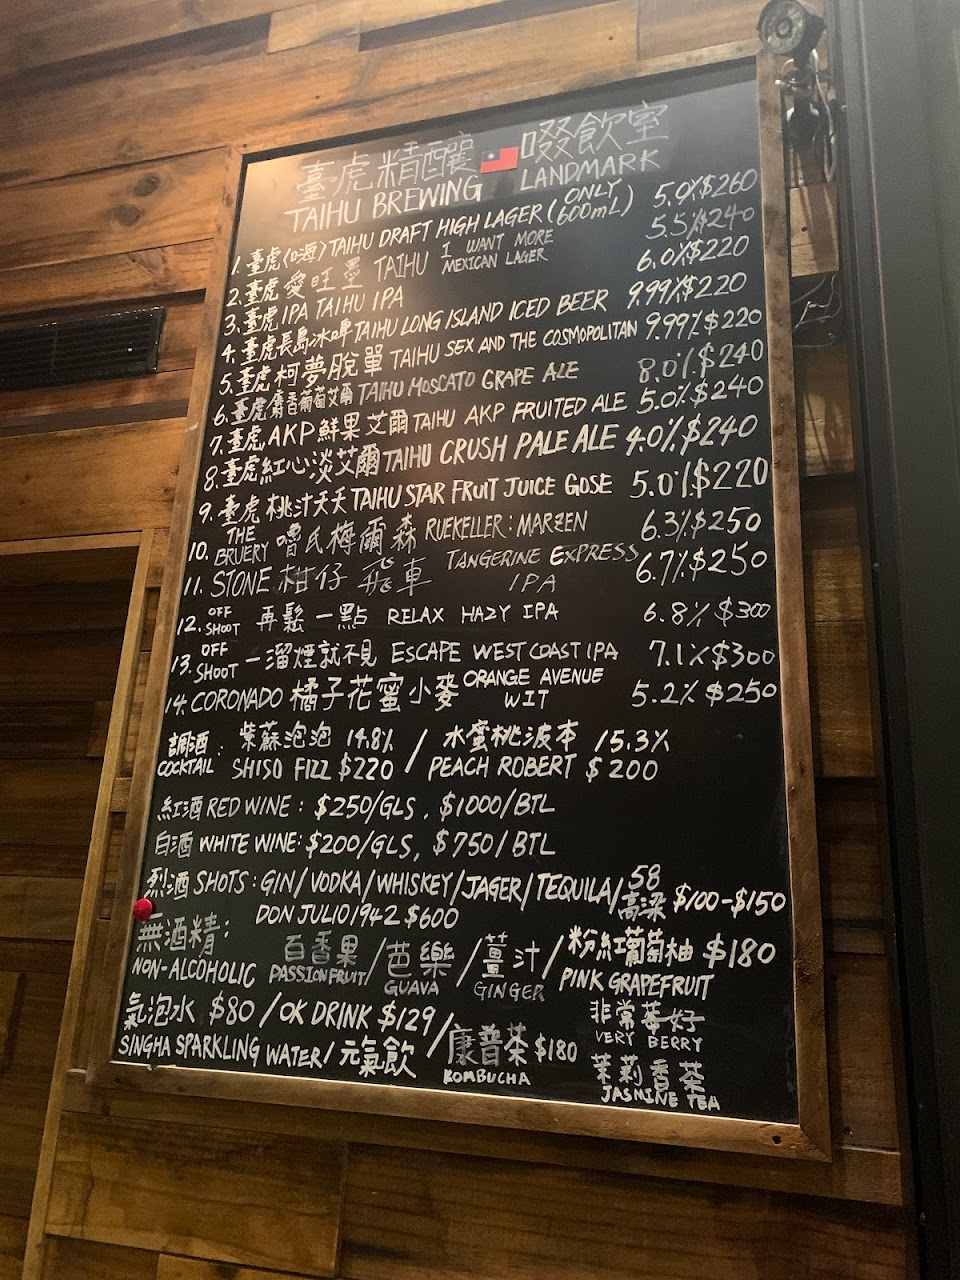 臺虎精釀 啜飲室
TAIHU BREWING LANDMARK
1. 臺虎(嗨) TAIHU DRAFT HIGH LAGER (ONLY 600mL) 5.0% $260
2. 臺虎 愛旺墨 TAIHU I WANT MORE MEXICAN LAGER 5.5% $240
3. 臺虎 IPA TAIHU IPA 6.0% $220
4. 臺虎長島冰啤 TAIHU LONG ISLAND ICED BEER 9.99% $220
5. 臺虎 柯夢脫單 TAIHU SEX AND THE COSMOPOLITAN 9.99% $220
6. 臺虎 麝香葡萄艾爾 TAIHU MOSCATO GRAPE ALE 8.0% $240
7. 臺虎 AKP鮮果艾爾 TAIHU AKP FRUITED ALE 5.0% $240
8. 臺虎紅心淡艾爾 TAIHU CRUSH PALE ALE 4.0% $240
9. 臺虎 桃汁夭夭 TAIHU STAR FRUIT JUICE GOSE 5.0% $220
10. THE BRUERY 嚕氏梅爾森 RUEKELLER: MARZEN 6.3% $250
11. STONE 柑仔飛車 TANGERINE EXPRESS IPA 6.7% $250
12. OFF SHOOT 再鬆一點 RELAX HAZY IPA 6.8% $300
13. OFF SHOOT 一溜煙就不見 ESCAPE WEST COAST IPA 7.1% $300
14. CORONADO 橘子花蜜小麥 ORANGE AVENUE WIT 5.2% $250
調酒: 紫蘇泡泡 14.8% / 水蜜桃波本 15.3%
COCKTAIL SHISO FIZZ $220 / PEACH ROBERT $200
紅酒 RED WINE: $250/GLS, $1000/BTL
白酒 WHITE WINE: $200/GLS, $750/BTL
烈酒 SHOTS: GIN/VODKA/WHISKEY/JAGER/TEQUILA/58高粱 $100-$150
DON JULIO 1942 $600
無酒精: 百香果/芭樂/薑汁/粉紅葡萄柚 $180
NON-ALCOHOLIC PASSIONFRUIT GUAVA GINGER PINK GRAPEFRUIT
氣泡水 $80 / OK DRINK $129 / 康普茶 $180 非常莓好 VERY BERRY
SINGHA SPARKLING WATER / 元氣飲 KOMBUCHA 茉莉香茶 JASMINE TEA